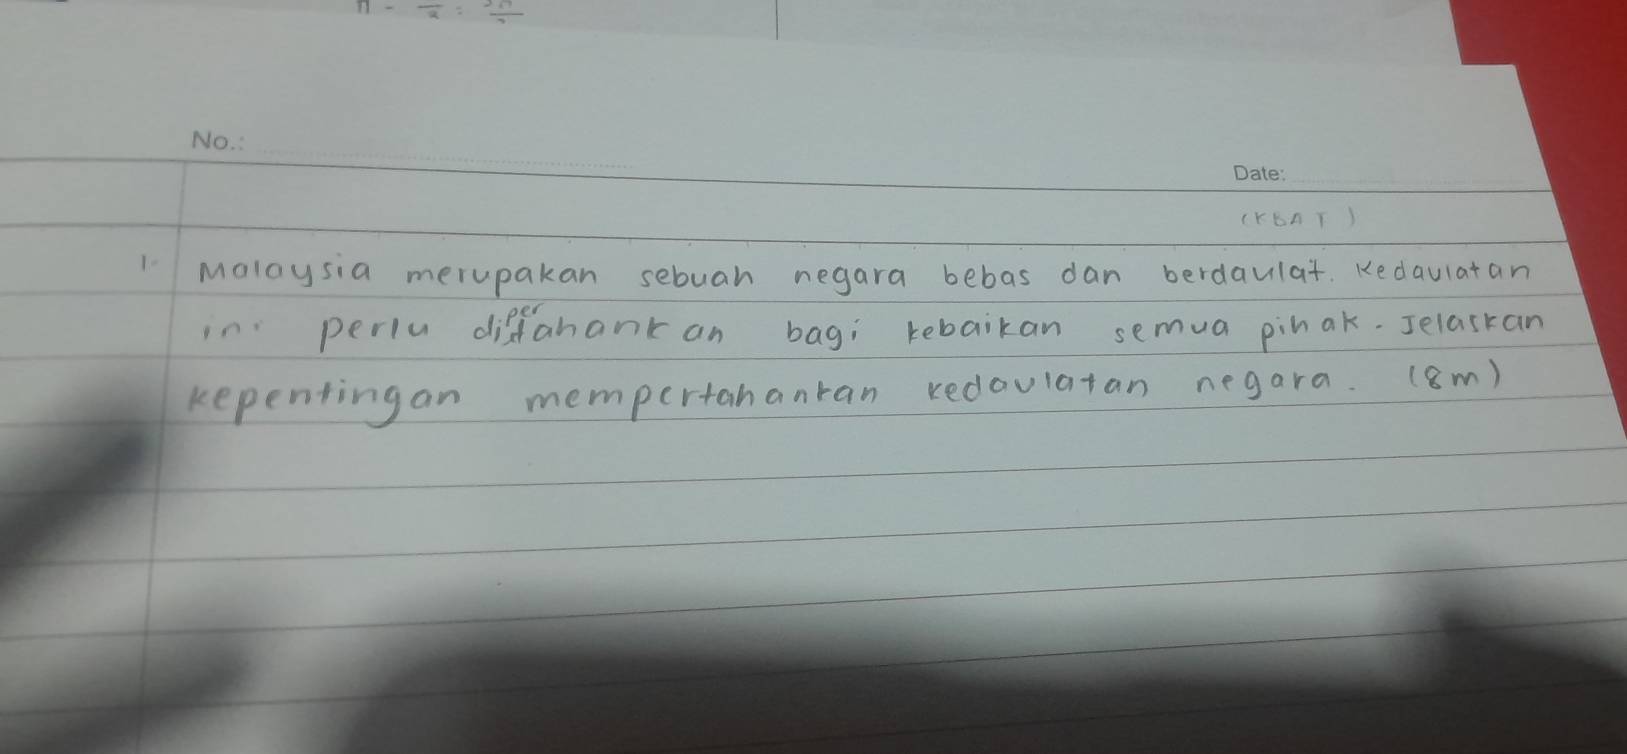 No.:
Date:
(KBAT)
1. Malaysia merupakan sebuah negara bebas dan berdaulat. Kedaulatan
ini perlu dipertahankan bagi kebaikan semua pihak. Jelaskan
kepentingan mempertahankan kedaulatan negara. (8m)